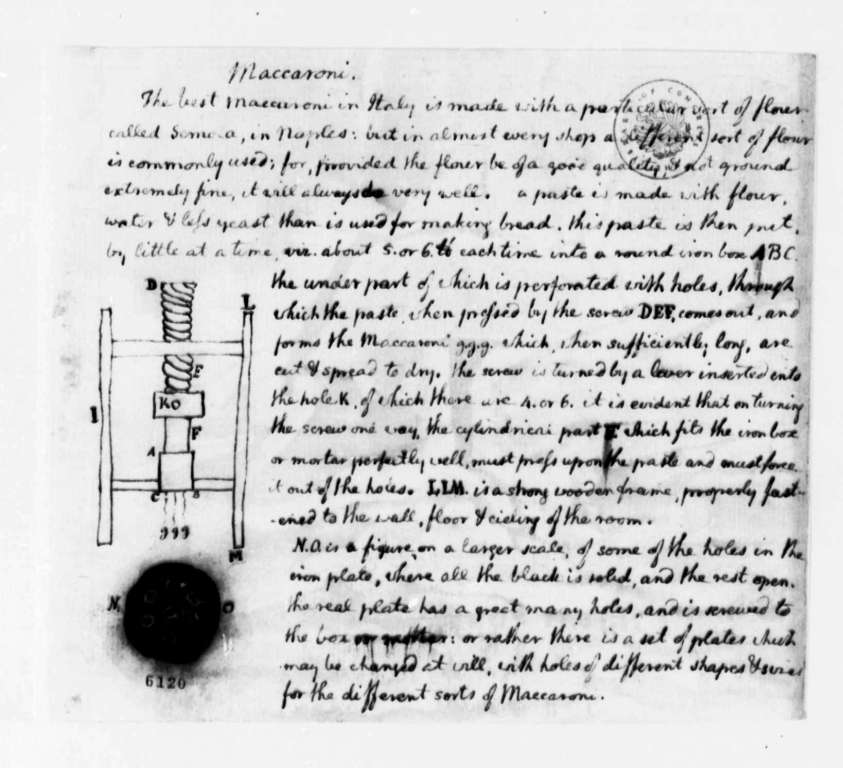 Maccaroni.
The best maccaroni in Italy is made with a particular sort of flour
called Semola, in Naples: but in almost every shop a different sort of flour
is commonly used; for, provided the flour be of a good quality, & not ground
extremely fine, it will always do very well. a paste is made with flour,
water & less yeast than is used for making bread. this paste is then put,
by little at a time, viz. about 5. or 6. lb each time into a round iron box ABC.
the under part of which is perforated with holes, through
which the paste, when pressed by the screw DEF, comes out, and
forms the Maccaroni g.g.g. which, when sufficiently long, are
cut & spread to dry. the screw is turned by a lever inserted into
the hole K, of which there are 4. or 6. it is evident that on turning
the screw one way, the cylindrical part F. which fits the iron box
or mortar perfectly well, must press upon the paste and must force
it out of the holes. LLM. is a strong wooden frame, properly fast-
-ened to the wall, floor & cieling of the room.
N.O. is a figure, on a larger scale, of some of the holes in the
iron plate, where all the black is solid, and the rest open.
the real plate has a great many holes, and is screwed to
the box or mortar: or rather there is a set of plates which
may be changed at will, with holes of different shapes & sizes
for the different sorts of Maccaroni.
D
L
E
I
KO
F
A
C
B
ggg
M
N
O
6120